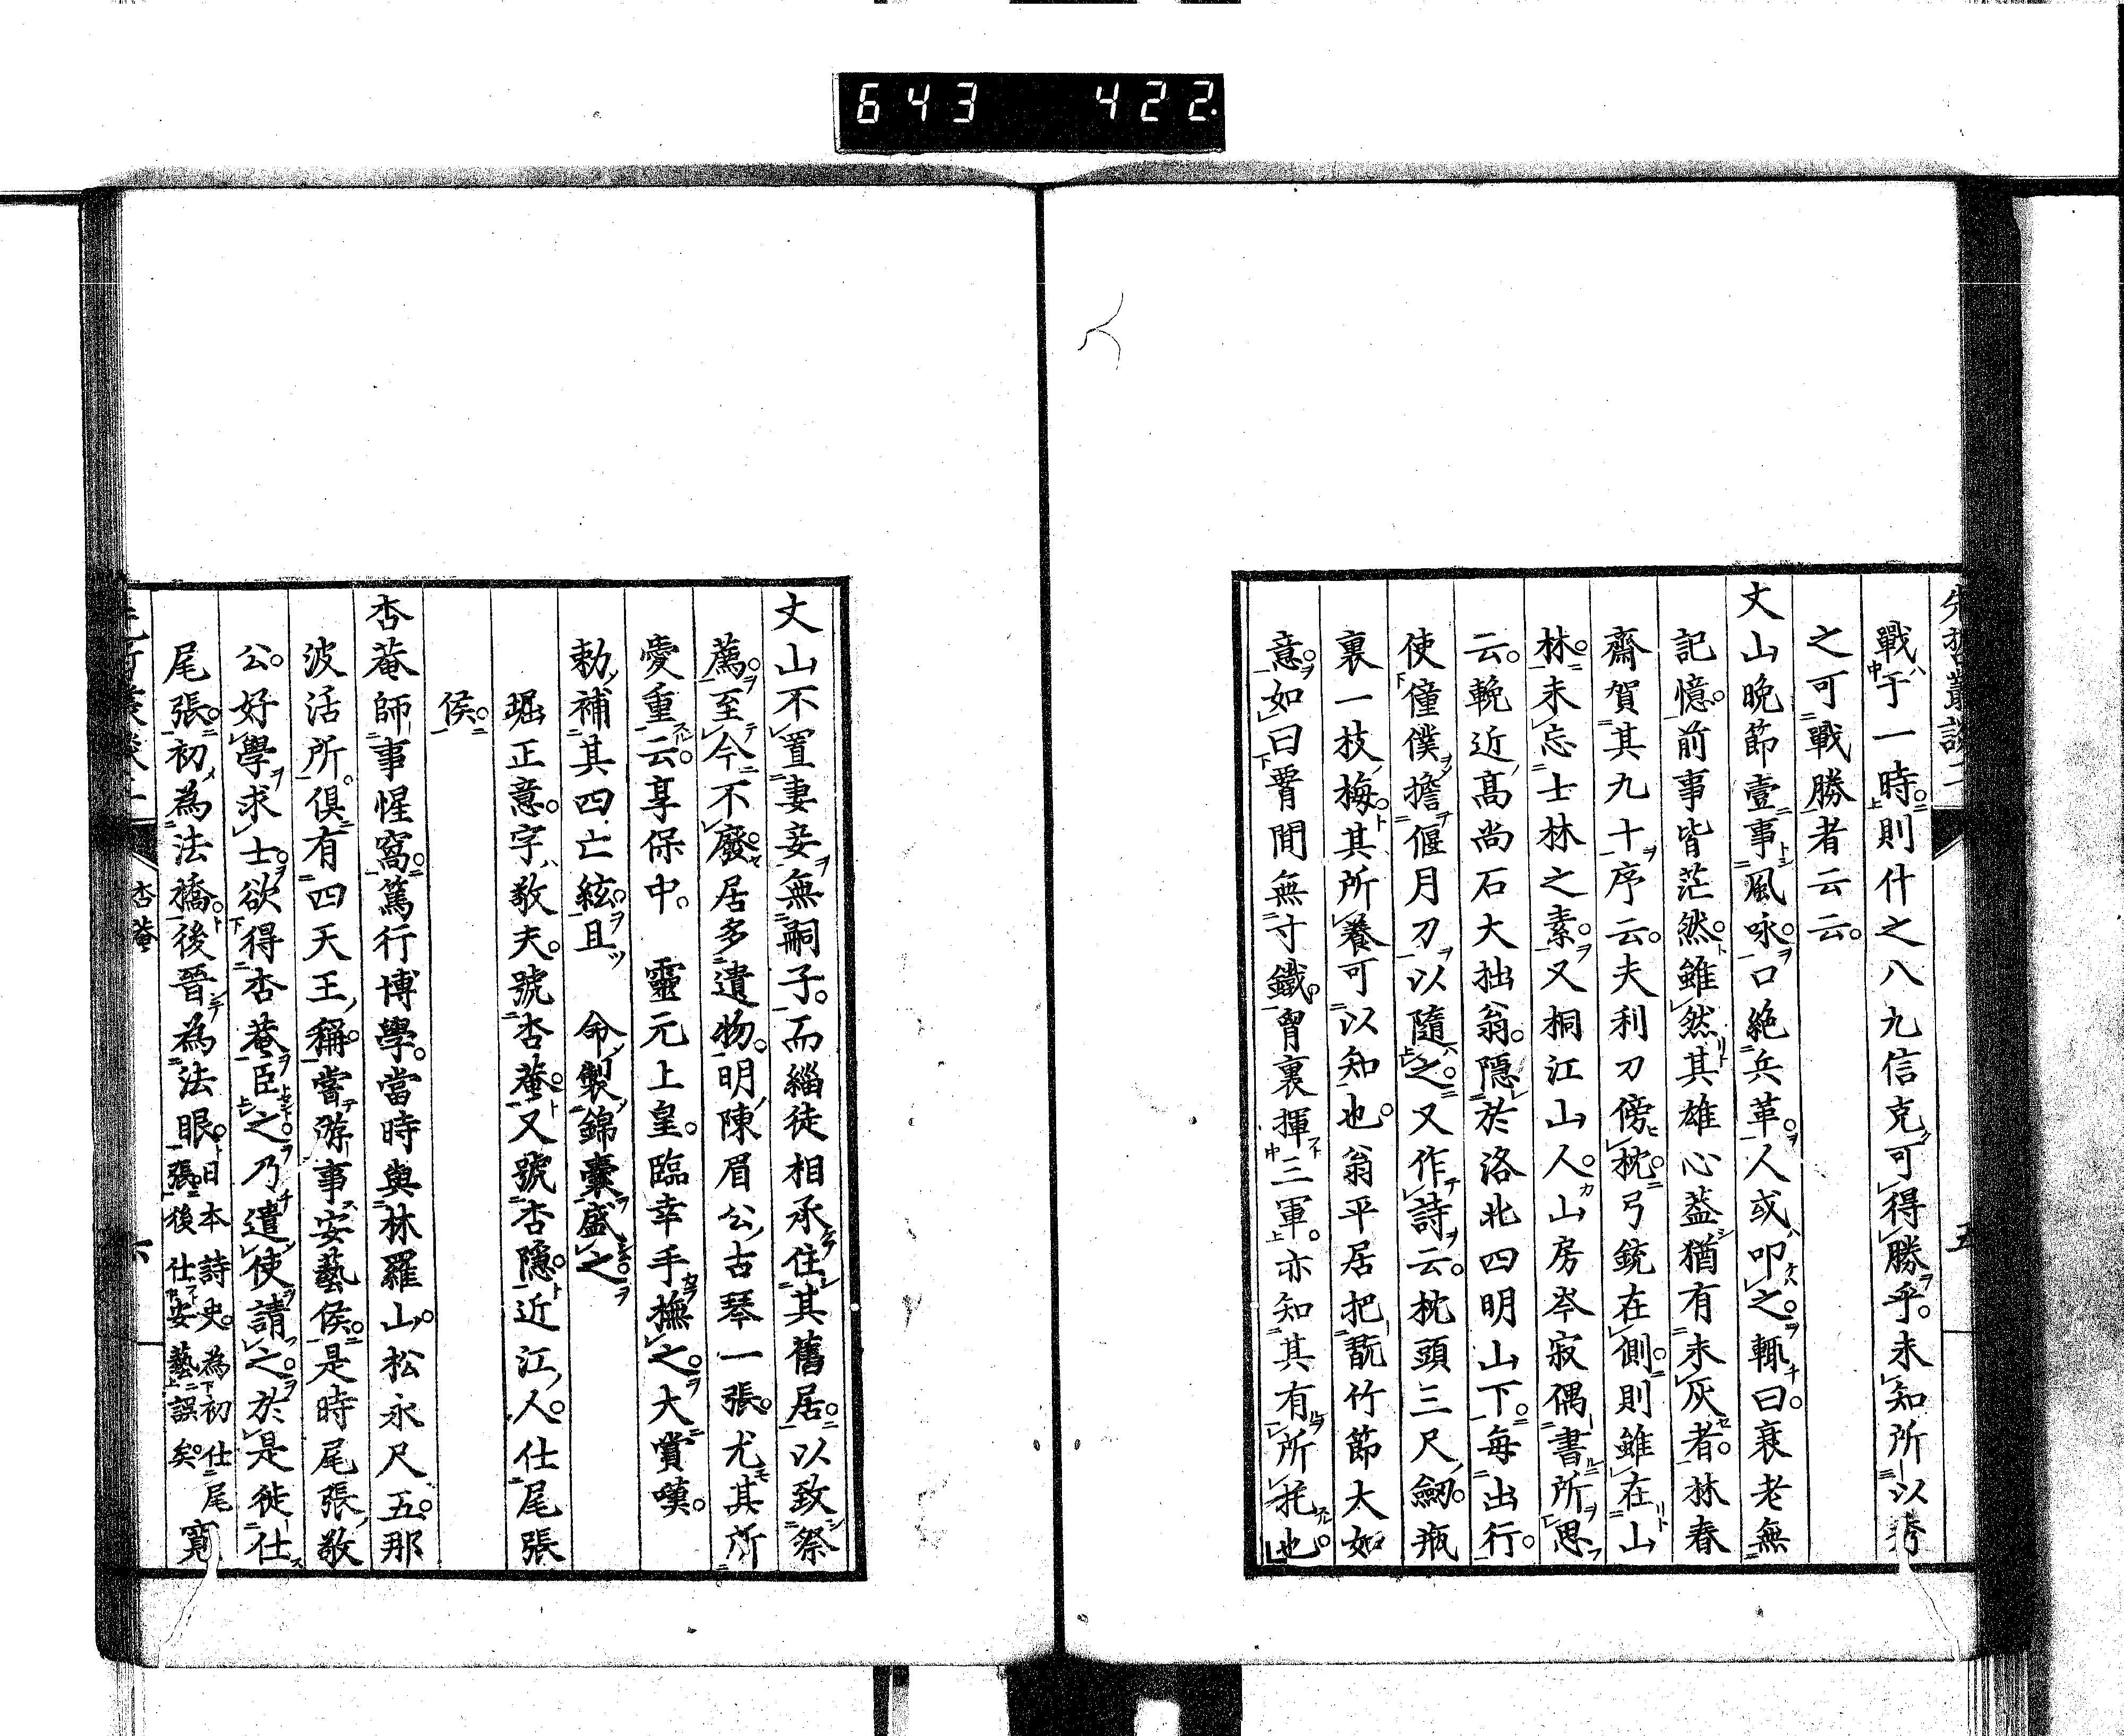 643 422
先哲叢談二
五
戰于一時則什之八九信克可得勝乎未知所以
之可戰勝者云云
丈山晚節壹事風咏口絶兵革人或叩之輙曰衰老無
記憶前事皆茫然雖然其雄心葢猶有未灰者林春
齋賀其九十序云夫利刀刃傍枕弓銃在側則雖在山
林未忘士林之素又桐江山人山房岑寂偶書所思
云輓近高尚石大拙翁隱於洛北四明山下每出行
使僮僕擔偃月刀以隨之又作詩云枕頭三尺劔瓶
裏一技梅其所養可以知也翁平居把翫竹節大如
意如曰胷間無寸鐵胷裏揮三軍亦知其有所托也
丈山不置妻妾無嗣子而緇徒相承住其舊居以致祭
薦至今不廢居多遺物明陳眉公古琴一張尤其所
愛重云享保中 靈元上皇臨幸手撫之大賞嘆
勅補其四亡絃且 命製錦囊盛之
堀正意字敬夫號杏菴又號杏隱近江人仕尾張
侯
杏菴師事惺窩篤行博學當時與林羅山松永尺五那
波活所俱有四天王稱嘗游事安藝侯是時尾張敬
公好學求士欲得杏菴臣之乃遣使請之於是徙仕
尾張初為法橋後晉為法眼日本詩史為初仕尾張後仕安藝誤矣寬
杏菴
六